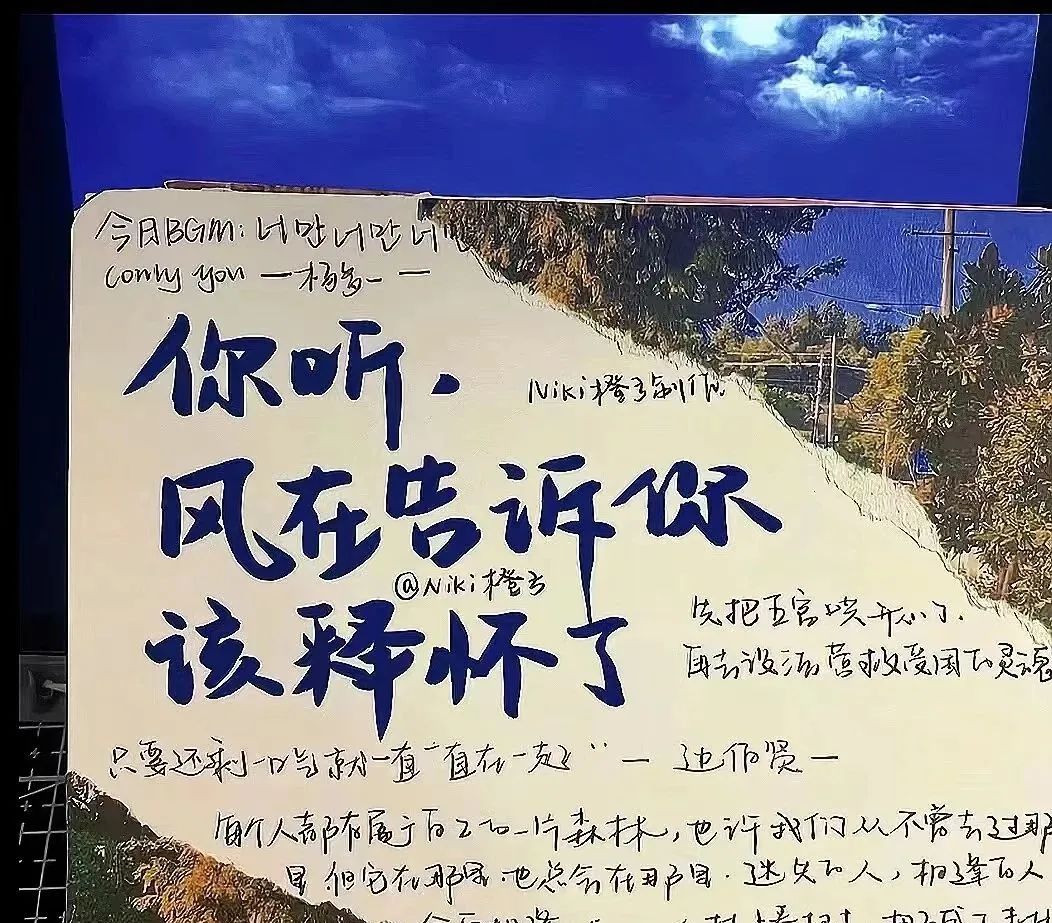 今日BGM:너만너만너만
(only you —杨多一 —
你听.
Niki橙子制作
风在告诉你
@Niki橙子
该释怀了
先把五官哄开心了.
再去设法营救受困的灵魂
只要还剩一口气就一直“直在一起” — 边伯贤—
每个人都有属于自己的一片森林,也许我们从不曾去过那
里 但它在那里.也总会在那里.迷失的人,相逢的人